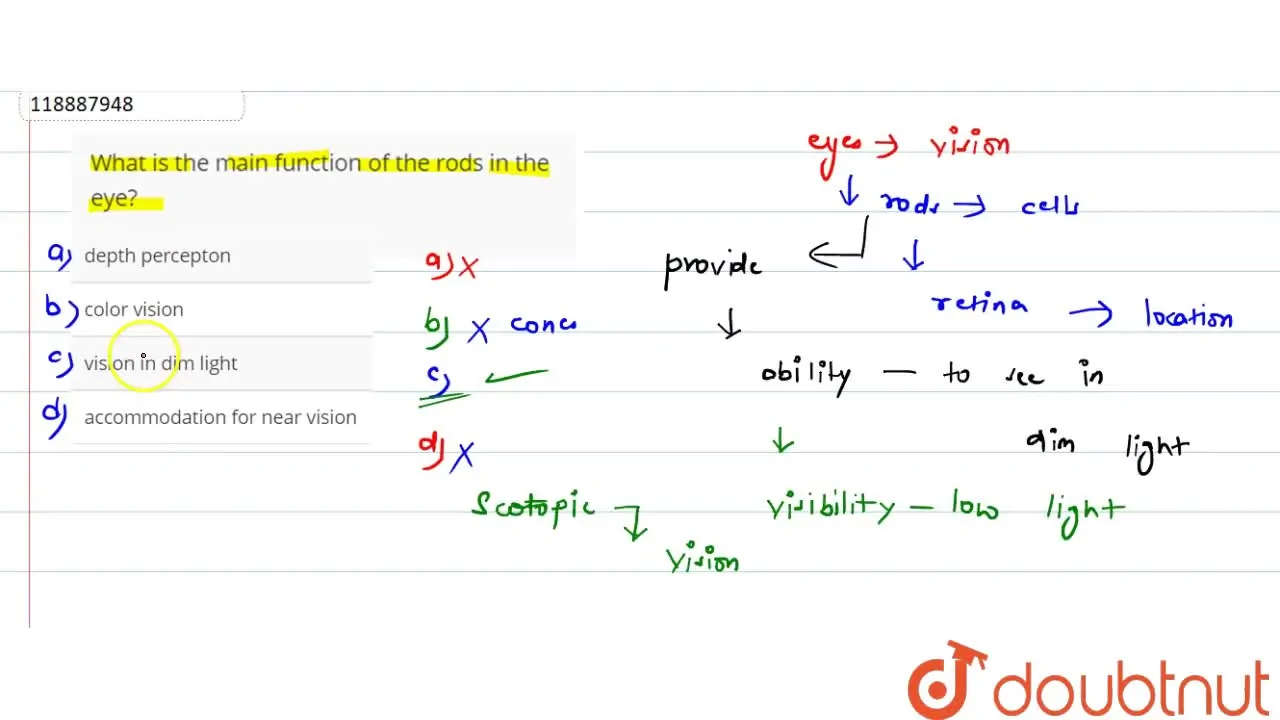 118887948
What is the main function of the rods in the
eye?
a) depth percepton
b) color vision
c) vision in dim light
d) accommodation for near vision
a) X
b) X cones
c) ✓
d) X
eyes → vision
↓ rods → cells
provide ← ↓
retina → location
↓
ability — to see in
dim light
↓
visibility — low light
Scotopic
↓
vision
doubtnut